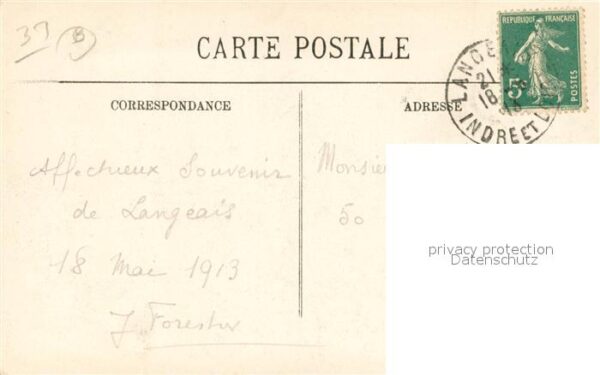 39 B
CARTE POSTALE
REPUBLIQUE FRANÇAISE
5c
POSTES
LANGE
21
18
INDRE ET L
CORRESPONDANCE
ADRESSE
Affectueux Souvenir
de Langeais
18 Mai 1913
J. Forestier
Monsie
50
privacy protection
Datenschutz